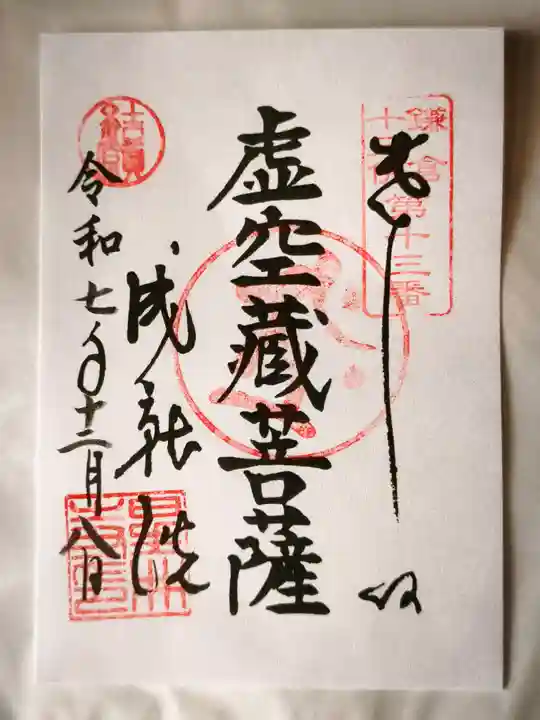 奉拝
鎌倉
第十三番
虚空蔵菩薩
成就院
令和七年十二月八日